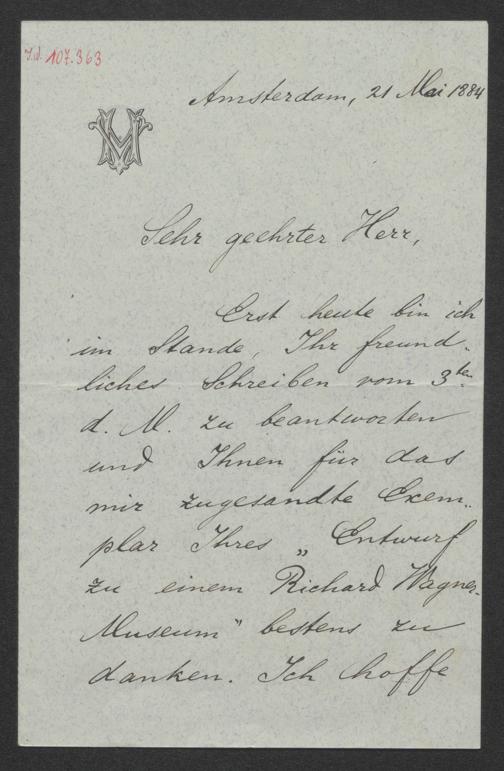 J.N. 107.363
Amsterdam, 21 Mai 1884
Sehr geehrter Herr,
Erst heute bin ich
im Stande, Ihr freund-
liches Schreiben vom 3ten
d. M. zu beantworten
und Ihnen für das
mir zugesandte Exem-
plar Ihres „Entwurf
zu einem Richard Wagner-
Museum" bestens zu
danken. Ich hoffe